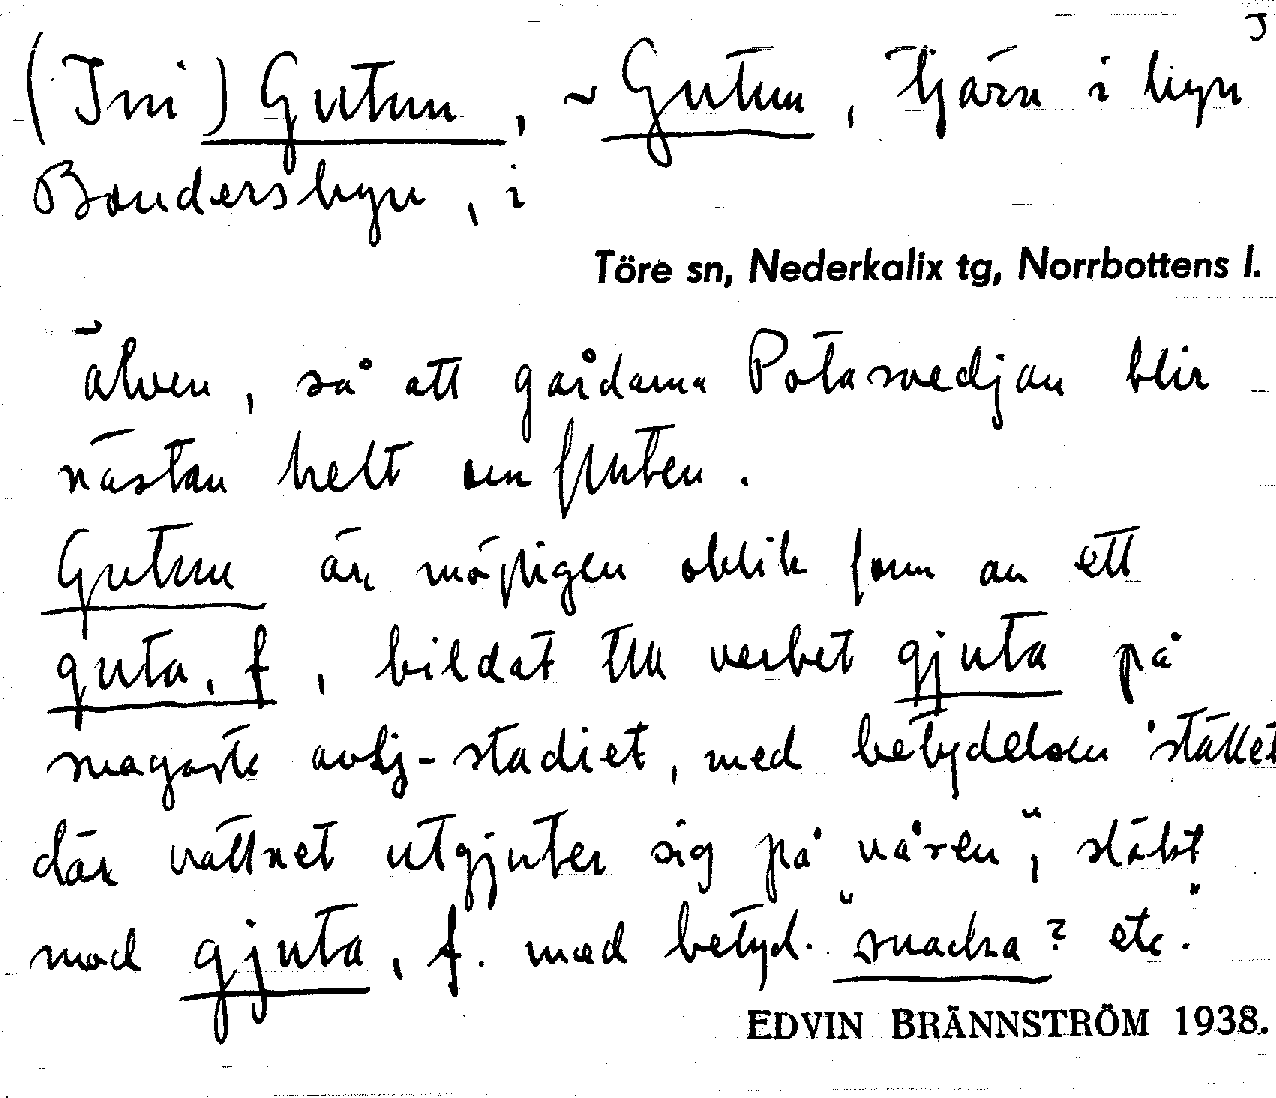 J
(Ini) Gutun, ~ Gutun, tjärn i byn
Bondersbyn, i
Töre sn, Nederkalix tg, Norrbottens l.
älven, så att gårdarna Potasvedjan blir
nästan helt omfluten.
Gutun är möjligen oblik form av ett
guta, f, bildat till verbet gjuta på
svagaste avlj-stadiet, med betydelsen "stället
där vattnet utgjuter sig på våren", släkt
med gjuta, f. med betyd. "snacka? etc."
EDVIN BRÄNNSTRÖM 1938.